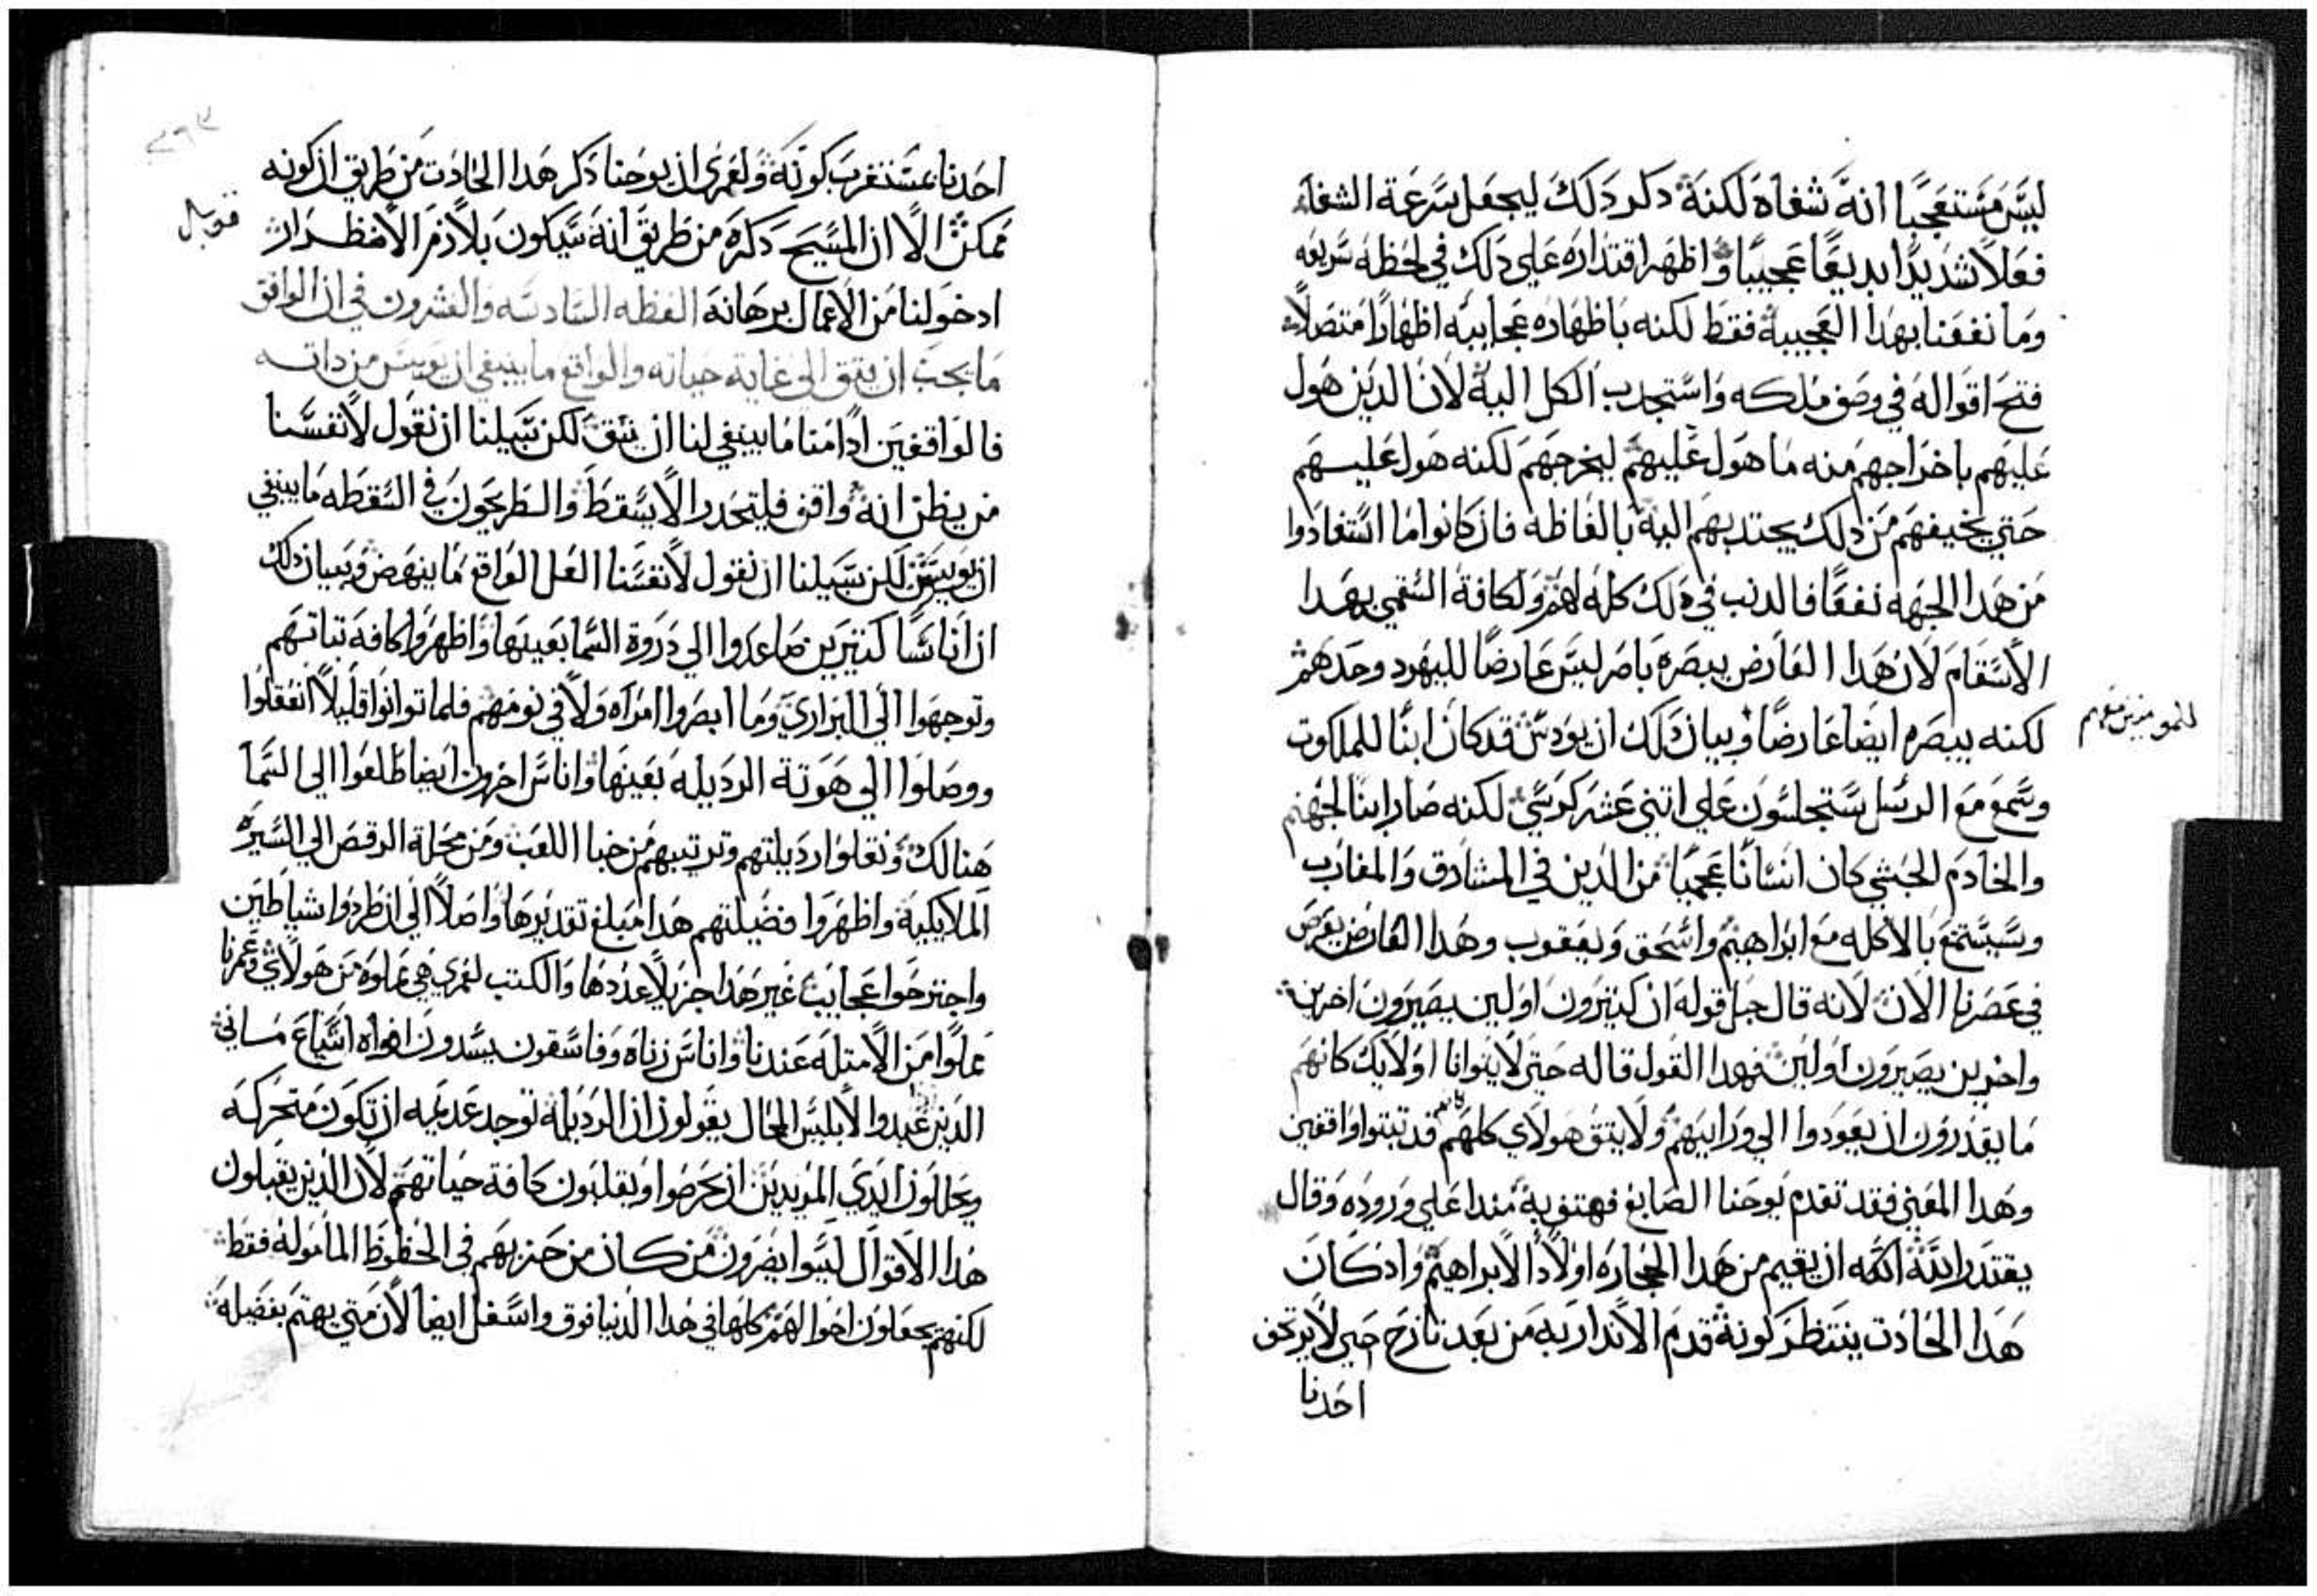 ليس مستعجبا انه شفاه لكنه دكر دلك ليجعل سرعة الشفاء
فعلا شديدا بديعا عجيبا واظهر اقتداره علي دلك في لحظه سريعه
وما نفعنا بهدا العجيبه فقط لكنه باظهاره عجاييه اظهارا متصلا
فتح اقواله في وصف ملكه واستجدب الكل اليه لان الدين هول
عليهم باخراجهم منه ما هول عليهم ليخرجهم لكنه هول عليهم
حتي يخيفهم من دلك يجتدبهم اليه بالفاظه فان كانوا ما استفادوا
من هدا الجهه نفعا فالدنب في دلك كله لهم ولكافة السقمي بهدا
الاسقام لان هدا العارض يبصره باصر ليس عارضا لليهود وحدهم
لكنه يبصره ايضا عارضا وبيان دلك ان يودس قد كان ابنا للملكوت
للمومنين معهم
وسمع مع الرسل ستجلسون علي اتني عشر كرسي لكنه صار ابنا لجهنم
والخادم الحبشي كان انسانا عجميا من الدين في المشارق والمغارب
وسيستمتع بالاكله مع ابراهيم واسحق ويعقوب وهدا العارض يعرض
في عصرنا الان لانه قال جل قوله ان كتيرون اولين يصيرون اخرين
واخرين يصيرون اولين فهدا القول قاله حتي لا يتوانا اولايك كانهم
ما يقدرون ان يعودوا الي ورايهم ولا يتق هولاي كلهم كانهم قد تبتوا واقفين
وهدا المعني فقد تقدم يوحنا الصابغ فهتف به مندا علي وروده وقال
يقتدر الله الاه ان يقيم من هدا الحجاره اولادا لابراهيم واد كان
هدا الحادت ينتظر كونه قدم الاندار به من بعد نازح حتي لا يرتجف
احدنا
احدنا مستغرب كونه ولعمري ان يوحنا دكر هدا الحادت من طريق ان كونه
ممكن الا ان المسيح دكره من طريق انه سيكون بلازم الاضطرار
قوبل
ادخولنا من الاعمال برهانه العظه السادسه والعشرون في ان الواقف
ما يجب ان يتق الي غاية حياته والواقع ما ينبغي ان يويس من داته
فالواقفين ادا منا ما ينبغي لنا ان نتق لكن سبيلنا ان نقول لانفسنا
من يظن انه واقف فليتحدر الا يسقط والمطريحون في السقطه ما ينبغي
ان يويس لكن سبيلنا ان نقول لانفسنا العل الواقع ما ينهض وبيان دلك
ان اناسا كتيرين صاعدوا الي دروة السما بعينها واظهروا كافه تباتهم
وتوجهوا الي البراري وما ابصروا امراه ولا في نومهم فلما توانوا قليلا انعقلوا
ووصلوا الي هوتة الرديله بعينها واناس اخرون ايضا طلعوا الي السما
هنالك ونقلوا رديلتهم وترتيبهم من خبا اللعب ومن محلة الرقص الي السيره
الملايكيه واظهروا فضيلتهم هدا مبلغ تقديرها واصلا الي ان طردوا شياطين
واجترحوا عجايب غير هدا جزيلا عددها والكتب لعمري هي مملوه من هولاي وعمرنا
مملوا من الامتله عندنا واناس زناه وفاسقون يسدون افواه اشياع ماني
الدين عبدوا لابليس المحال يقولون ان الرديله توجد عديمه ان تكون متحركه
ويحللون ايدي المريدين ان يحرضوا ويقلبون كافة حياتهم لان الدين يقبلون
هدا الاقوال ليسوا يضرون من كان من حزبهم في الحظوظ المامولة فقط
لكنهم يجعلون احوالهم كلها في هدا الدنيا فوق واسفل ايضا لان متي يهتم بفضيله